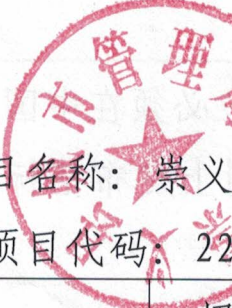 市管理
目名称：崇义
项目代码：22